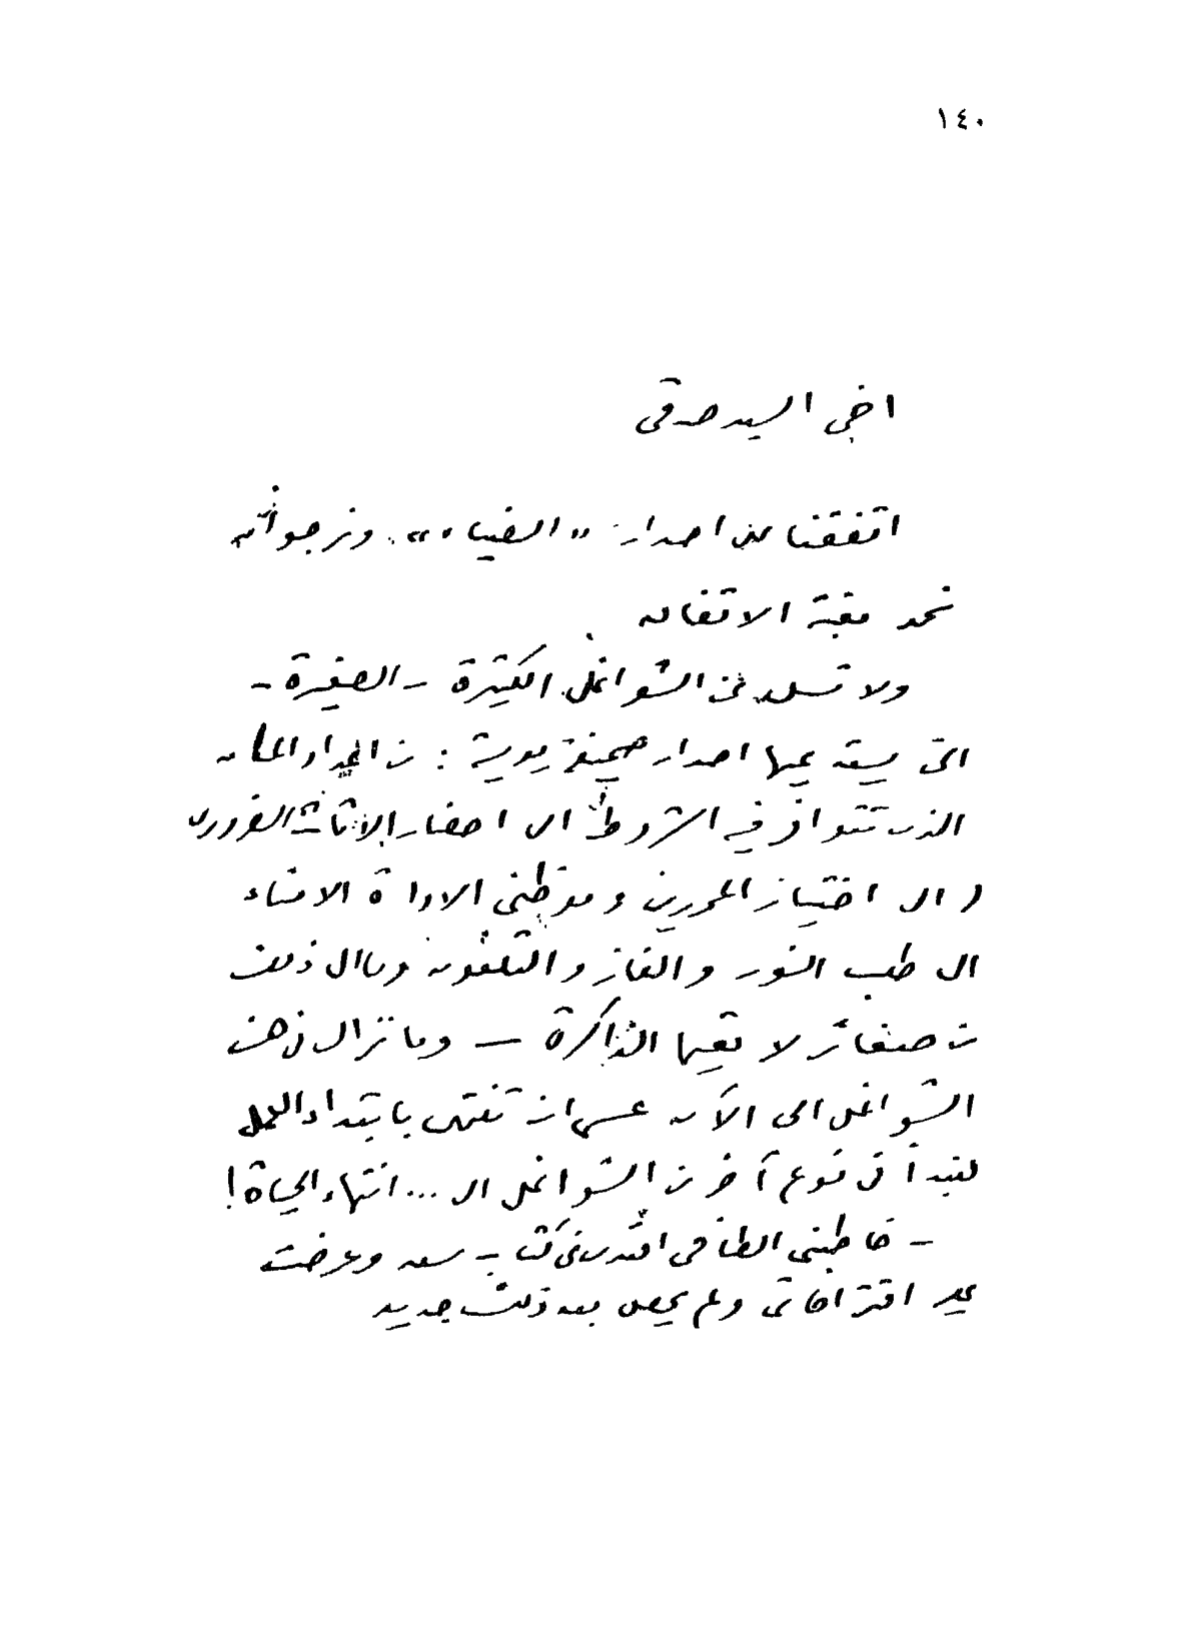 ١٤٠
اخي السيد صدقى
اتفقنا على اصدار «الضياء». ونرجو أن
نحمد مغبة الاتفاق
ولا تسل عن الشواغل الكثيرة - الصغيرة -
التى يستدعيها اصدار صحيفة يومية : من ايجاد المكان
الذى تتوافر فيه الشروط الى احضار الاثاث الضرورى
الى اختيار المحررين وموظفى الادارة الامناء
الى طلب النور والغاز والتلفون وما الى ذلك
من صغائر لا تعيها الذاكرة — وما تزال هذه
الشواغل الى الآن عسى ان تنتهى بابتداء العمل
لنبدأ فى نوع آخر من الشواغل الى ... انتهاء الحياة !
- خاطبنى الطناحى افندى فى كتاب سعد وعرضت
عليه اقتراحاتى ولم يحصل بعد ذلك جديد